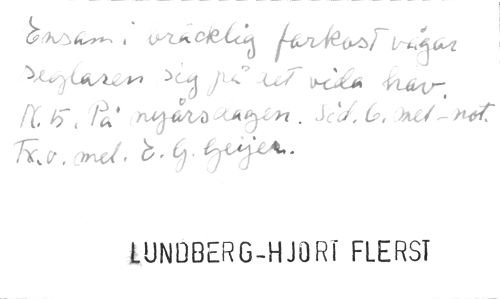 Ensam i bräcklig farkost vågar
seglaren sig på det vida hav.
N. 5. På nyårsdagen. Sid. 6. mel-not.
Tx. o. mel. E. G. Geijer.
LUNDBERG-HJORT FLERST